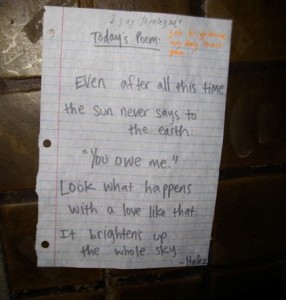 Today's Poem:
Even after all this time
the sun never says to
the earth:
"You owe me."
Look what happens
with a love like that.
It brightens up
the whole sky.